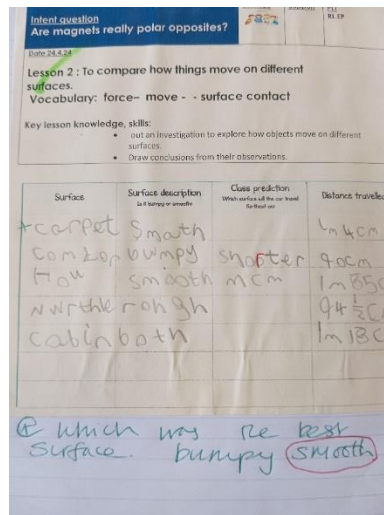 Intent question
Are magnets really polar opposites?
Date 24.4.24
Lesson 2 : To compare how things move on different
surfaces.
Vocabulary: force– move - - surface contact
Key lesson knowledge, skills:
• out an investigation to explore how objects move on different
surfaces.
• Draw conclusions from their observations.
Surface Surface description Class prediction Distance travelled
Is it bumpy or smooth Which surface will the car travel
carpet Smath 1m 4cm
bumpy shorter 90cm
smooth mcm 1m 85c
rohgh 94½c
cabin both 1m 18c
which was the best
surface. bumpy smooth